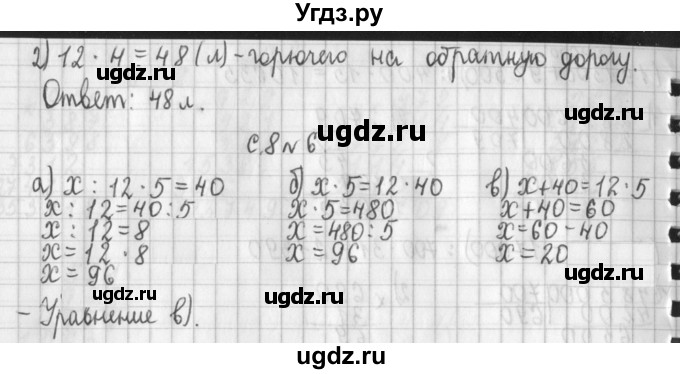 Угдз.ру
2) 12 · 4 = 48 (л) - горючего на обратную дорогу.
ugdz.ru ugdz.ru
Ответ: 48 л.
ugdz.ru
с. 8 № 6
а) x : 12 · 5 = 40 б) x · 5 = 12 · 40 в) x + 40 = 12 · 5
x : 12 = 40 : 5 x · 5 = 480 x + 40 = 60
x : 12 = 8 x = 480 : 5 x = 60 - 40
x = 12 · 8 x = 96 x = 20
x = 96
ugdz.ru ugdz.ru
- Уравнение в).
ugdz.ru
ugdz.ru